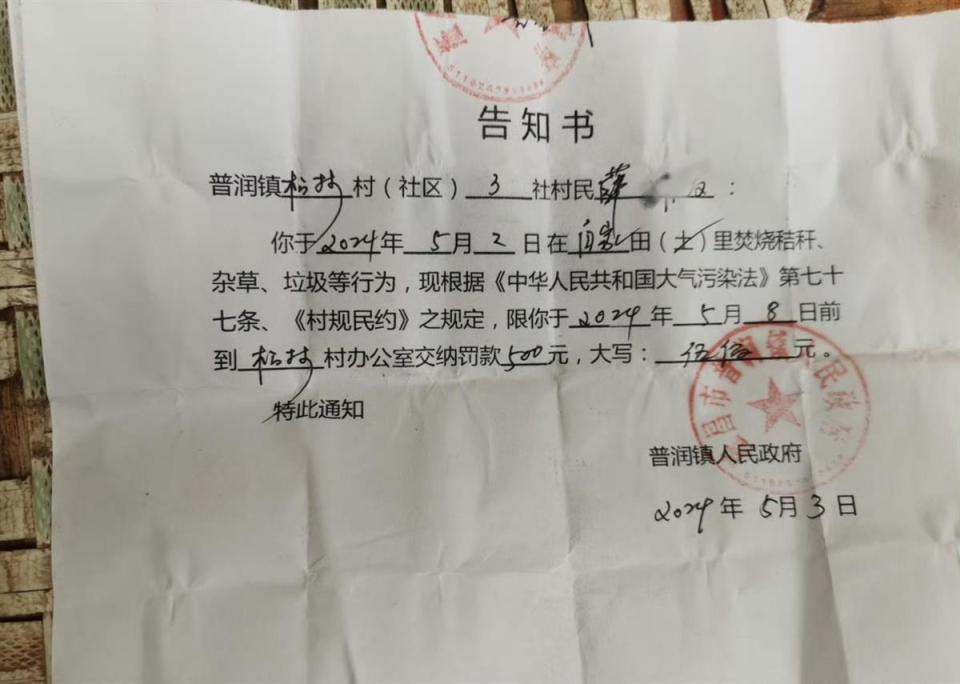 告知书
普润镇松林村（社区）3社村民薛
你于2024年5月2日在自家田（土）里焚烧秸秆、
杂草、垃圾等行为，现根据《中华人民共和国大气污染法》第七十
七条、《村规民约》之规定，限你于2024年5月8日前
到松林村办公室交纳罚款500元，大写：伍佰元。
特此通知
昌市普润镇人民政府
普润镇人民政府
2024年5月3日